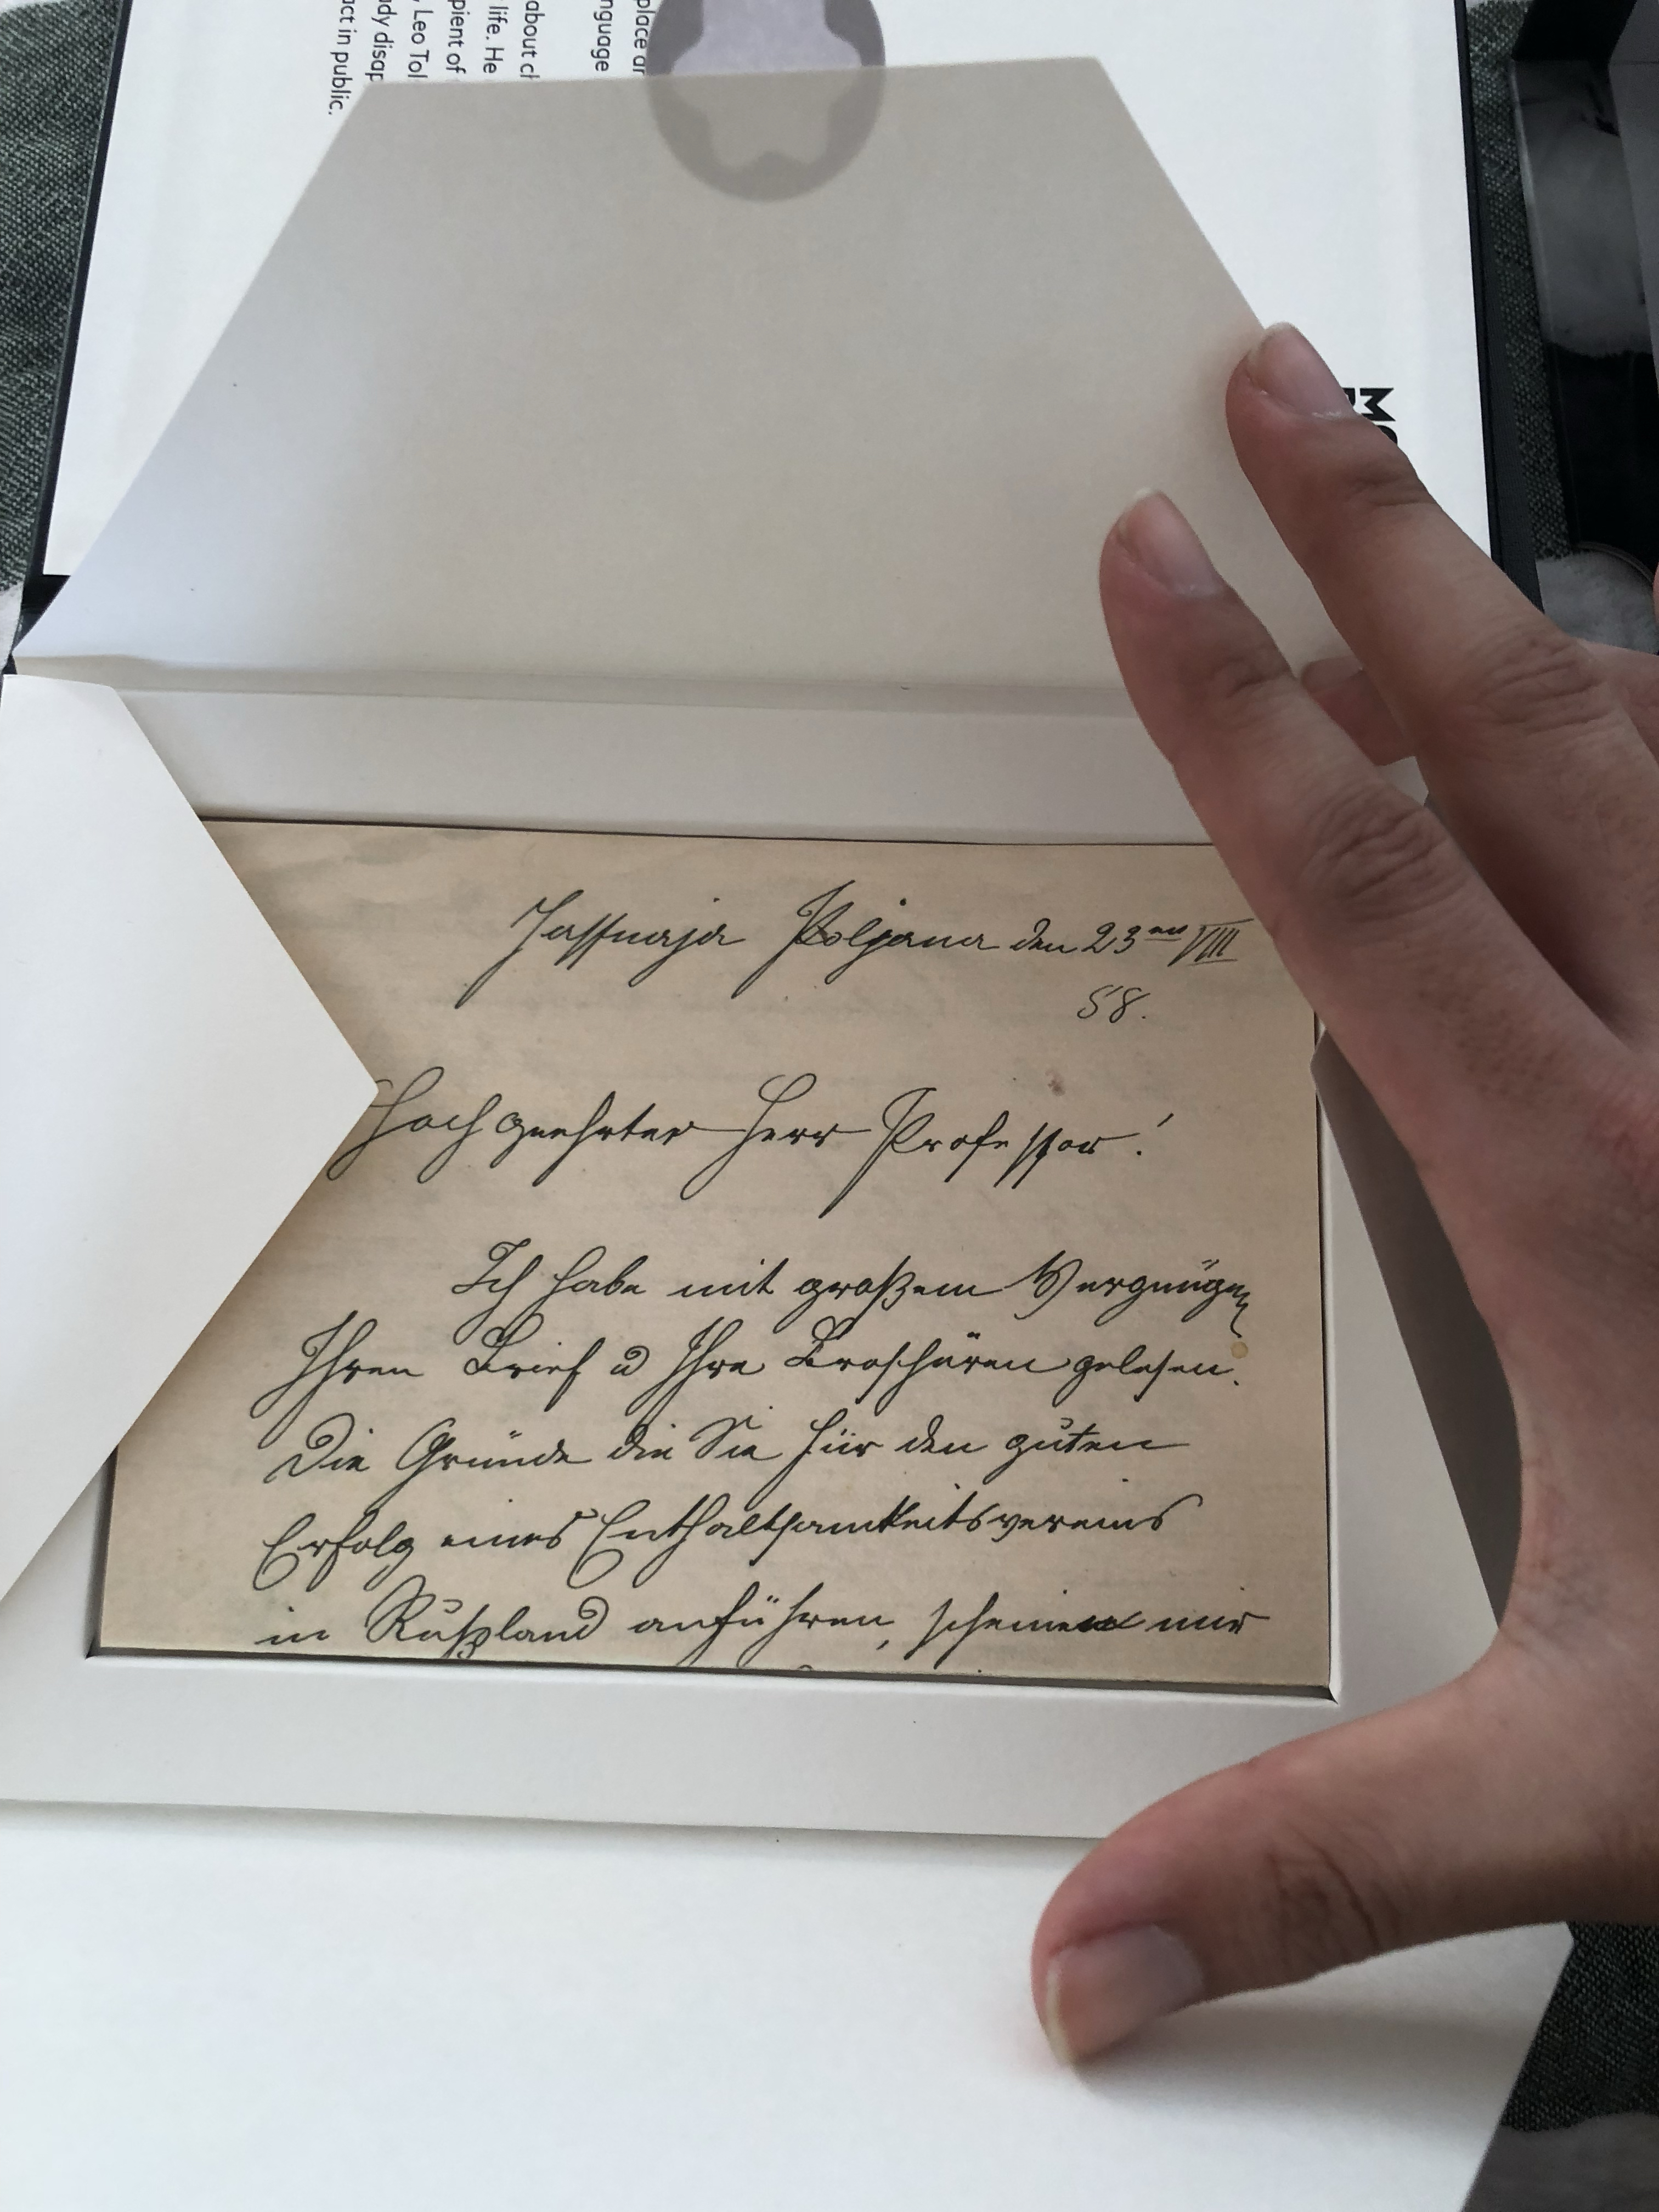 place ar
nguage
about cl
life. He
pient of
, Leo Tol
dy disap
act in public.
Jassnaja Poljana den 23ten VIII
58.
Hochgeehrter Herr Professor!
Ich habe mit großem Vergnügen
Ihren Brief u Ihre Broschüren gelesen.
Die Gründe die Sie für den guten
Erfolg eines Enthaltsamkeitsvereins
in Rußland anführen, scheinen mir